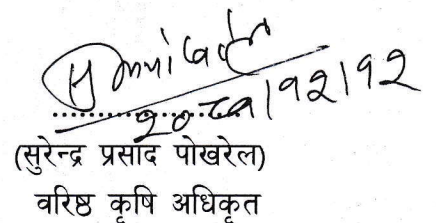 २०८१।१२।१२
(सुरेन्द्र प्रसाद पोखरेल)
वरिष्ठ कृषि अधिकृत